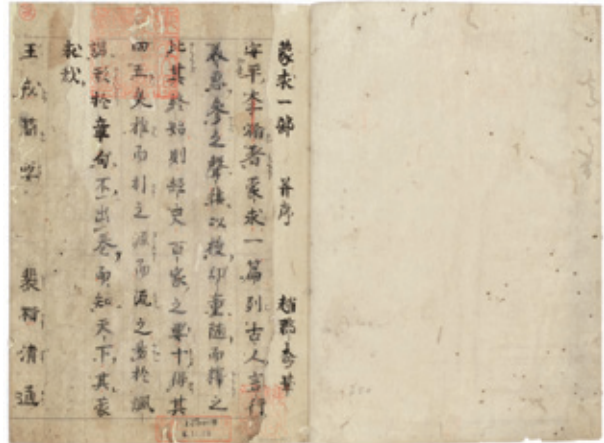 蒙求一卷 并序 趙郡李華
安平李瀚著蒙求一篇列古人言行
美惡參之聲律以授幼童隨而釋之
比其終始則經史百家之要十得其
四五矣推而引之源而流之易於諷
誦形於章句不出卷而知天下其蒙
求哉
王戎簡要 裴楷清通